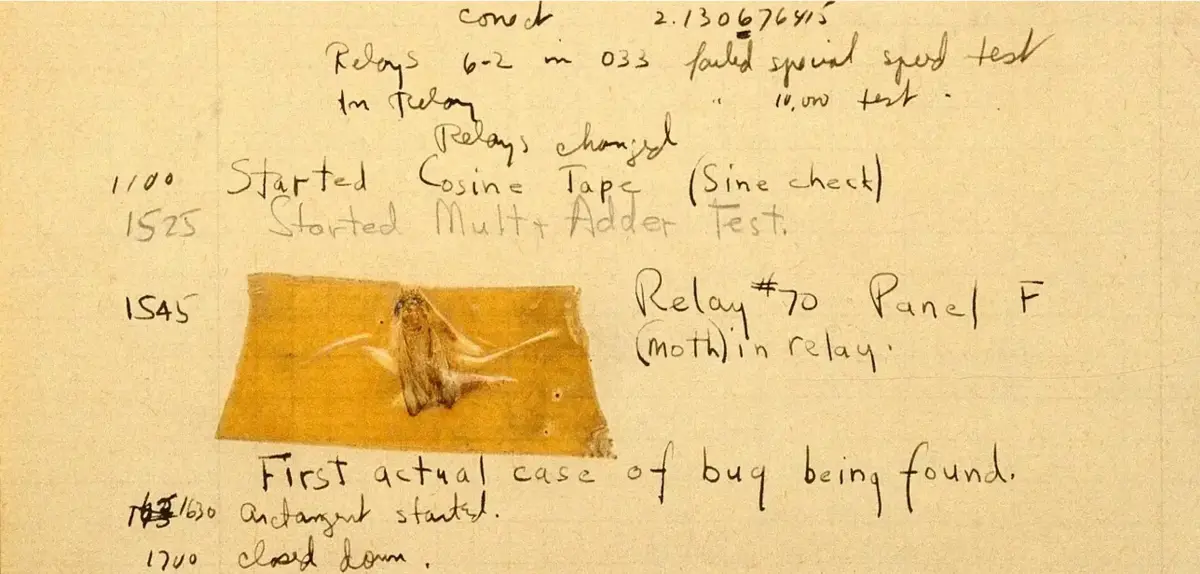 correct 2.130676415
Relays 6-2 in 033 failed special speed test
In Relay " 10,000 test.
Relays changed
1100 Started Cosine Tape (Sine check)
1525 Started Mult+ Adder Test.
1545 Relay #70 Panel F
(moth) in relay.
First actual case of bug being found.
1630 arctangent started.
1700 closed down.